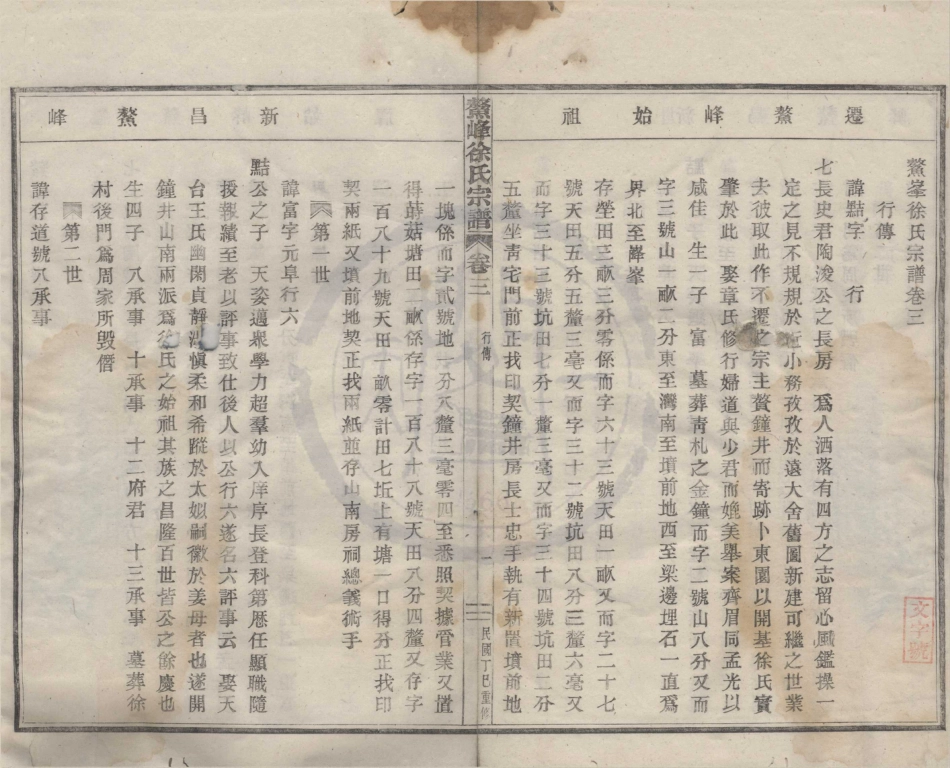 遷鰲峰始祖
鰲峯徐氏宗譜卷三
行傳
諱點字 行
七長史君陶浚公之長房 為人洒落有四方之志留心風鑑操一
定之見不規規於近小務孜孜於遠大舍舊圖新建可繼之世業
去彼取此作不遷之宗主贅鐘井而寄跡卜東園以開基徐氏實
肇於此 娶章氏修行婦道與少君而媲美舉案齊眉同孟光以
咸佳 生一子 富 墓葬靑札之金鐘而字二號山八分又而
字三號山十畝二分東至灣南至墳前地西至梁邊埋石一直為
界北至峰峯
存塋田三畝三分零係而字六十三號天田一畝又而字二十七
號天田五分五釐三毫又而字三十二號坑田八分三釐六毫又
而字三十三號坑田七分一釐三毫又而字三十四號坑田二分
五釐坐靑宅門前正找印契鐘井房長士忠手執有新置墳前地
鰲峰徐氏宗譜 卷三 行傳 一 民國丁巳重修
新昌鰲峰
一塊係而字貳號地一分八釐三毫零四至悉照契據管業又置
得蒔菇塘田二畝係存字一百八十八號天田八分四釐又存字
一百八十九號天田一畝零計田七坵上有塘一口得分正找印
契兩紙又墳前地契正找兩紙並存山南房祠總義術手
第一世
諱富字元阜行六
點公之子 天姿邁衆學力超羣幼入庠序長登科第歷任顯職隨
授報績至老以評事致仕後人以公行六遂名六評事云 娶天
台王氏幽閑貞靜淑慎柔和希蹤於太姒嗣徽於姜母者也遂開
鐘井山南兩派為徐氏之始祖其族之昌隆百世皆公之餘慶也
生四子 八承事 十承事 十二府君 十三承事 墓葬徐
村後門爲周家所毀僭
第二世
諱存道號八承事
文字號